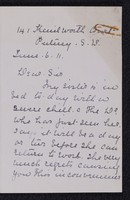 141 Kenilworth Court
Putney. S.W.
June. 6. 11.
Dear Sir
My sister is in
bed to day with a
severe chill & the Dr.
who has just seen her
says it will be a day
or two before she can
return to work. She very
much regrets causing
you this inconvenience